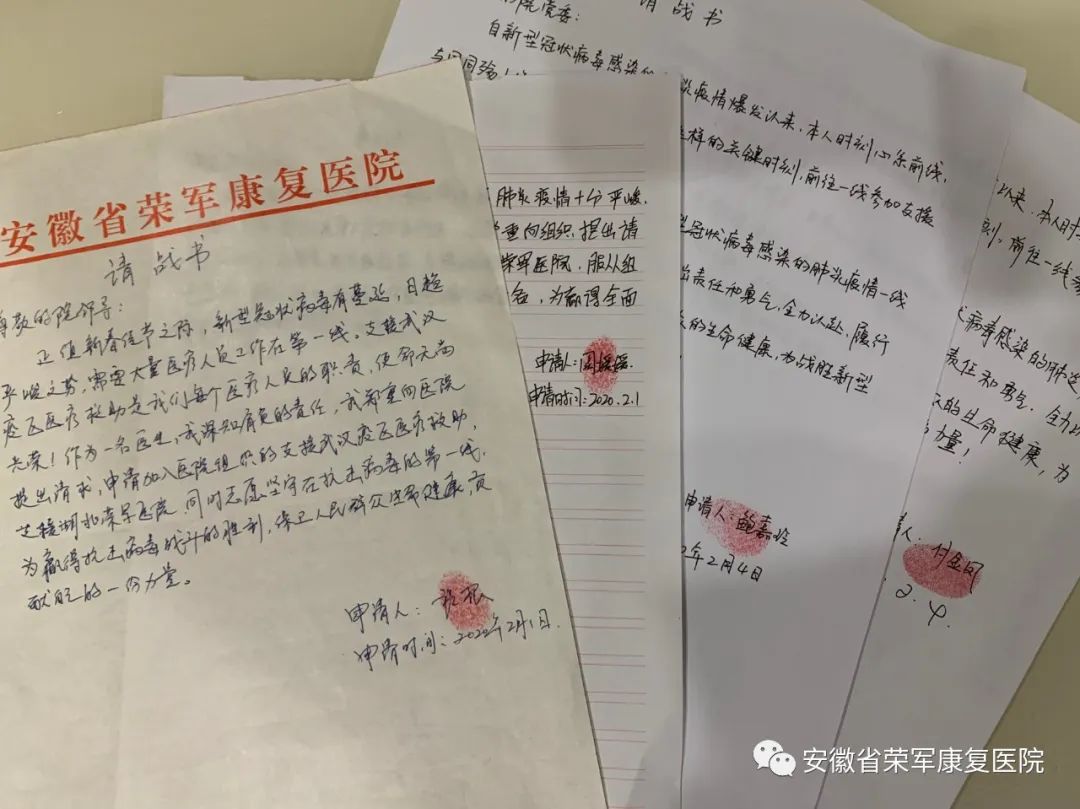 安徽省荣军康复医院
请战书
尊敬的院领导:
正值新春佳节之际，新型冠状病毒有蔓延，日趋
严峻之势，需要大量医疗人员工作在第一线。支援武汉
疫区医疗救助是我们每个医疗人员的职责，使命无尚
光荣！作为一名医生，我深知肩负的责任，我郑重向医院
提出请求，申请加入医院组织的支援武汉疫区医疗救助，
支援湖北荣军医院，同时志愿坚守在抗击病毒的第一线，
为赢得抗击病毒战斗的胜利，保卫人民群众生命健康，贡
献自己的一份力量。
申请人：
申请时间：2020年2月1日.
肺炎疫情十分严峻，
重向组织提出请
荣军医院，服从组
为赢得全面
申请人：
申请时间：2020.2.1
请战书
院党委：
自新型冠状病毒感染的
炎疫情爆发以来，本人时刻心系前线，
样的关键时刻，前往一线参加支援
型冠状病毒感染的肺炎疫情一线
出责任和勇气，全力以赴，履行
的生命健康，为战胜新型
申请人：鲍嘉玲
年2月4日
以来，本人时
刻，前往一线参
病毒感染的肺炎
责任和勇气，全力以
的生命健康，为
力量！
人：付金凤
2.4
安徽省荣军康复医院